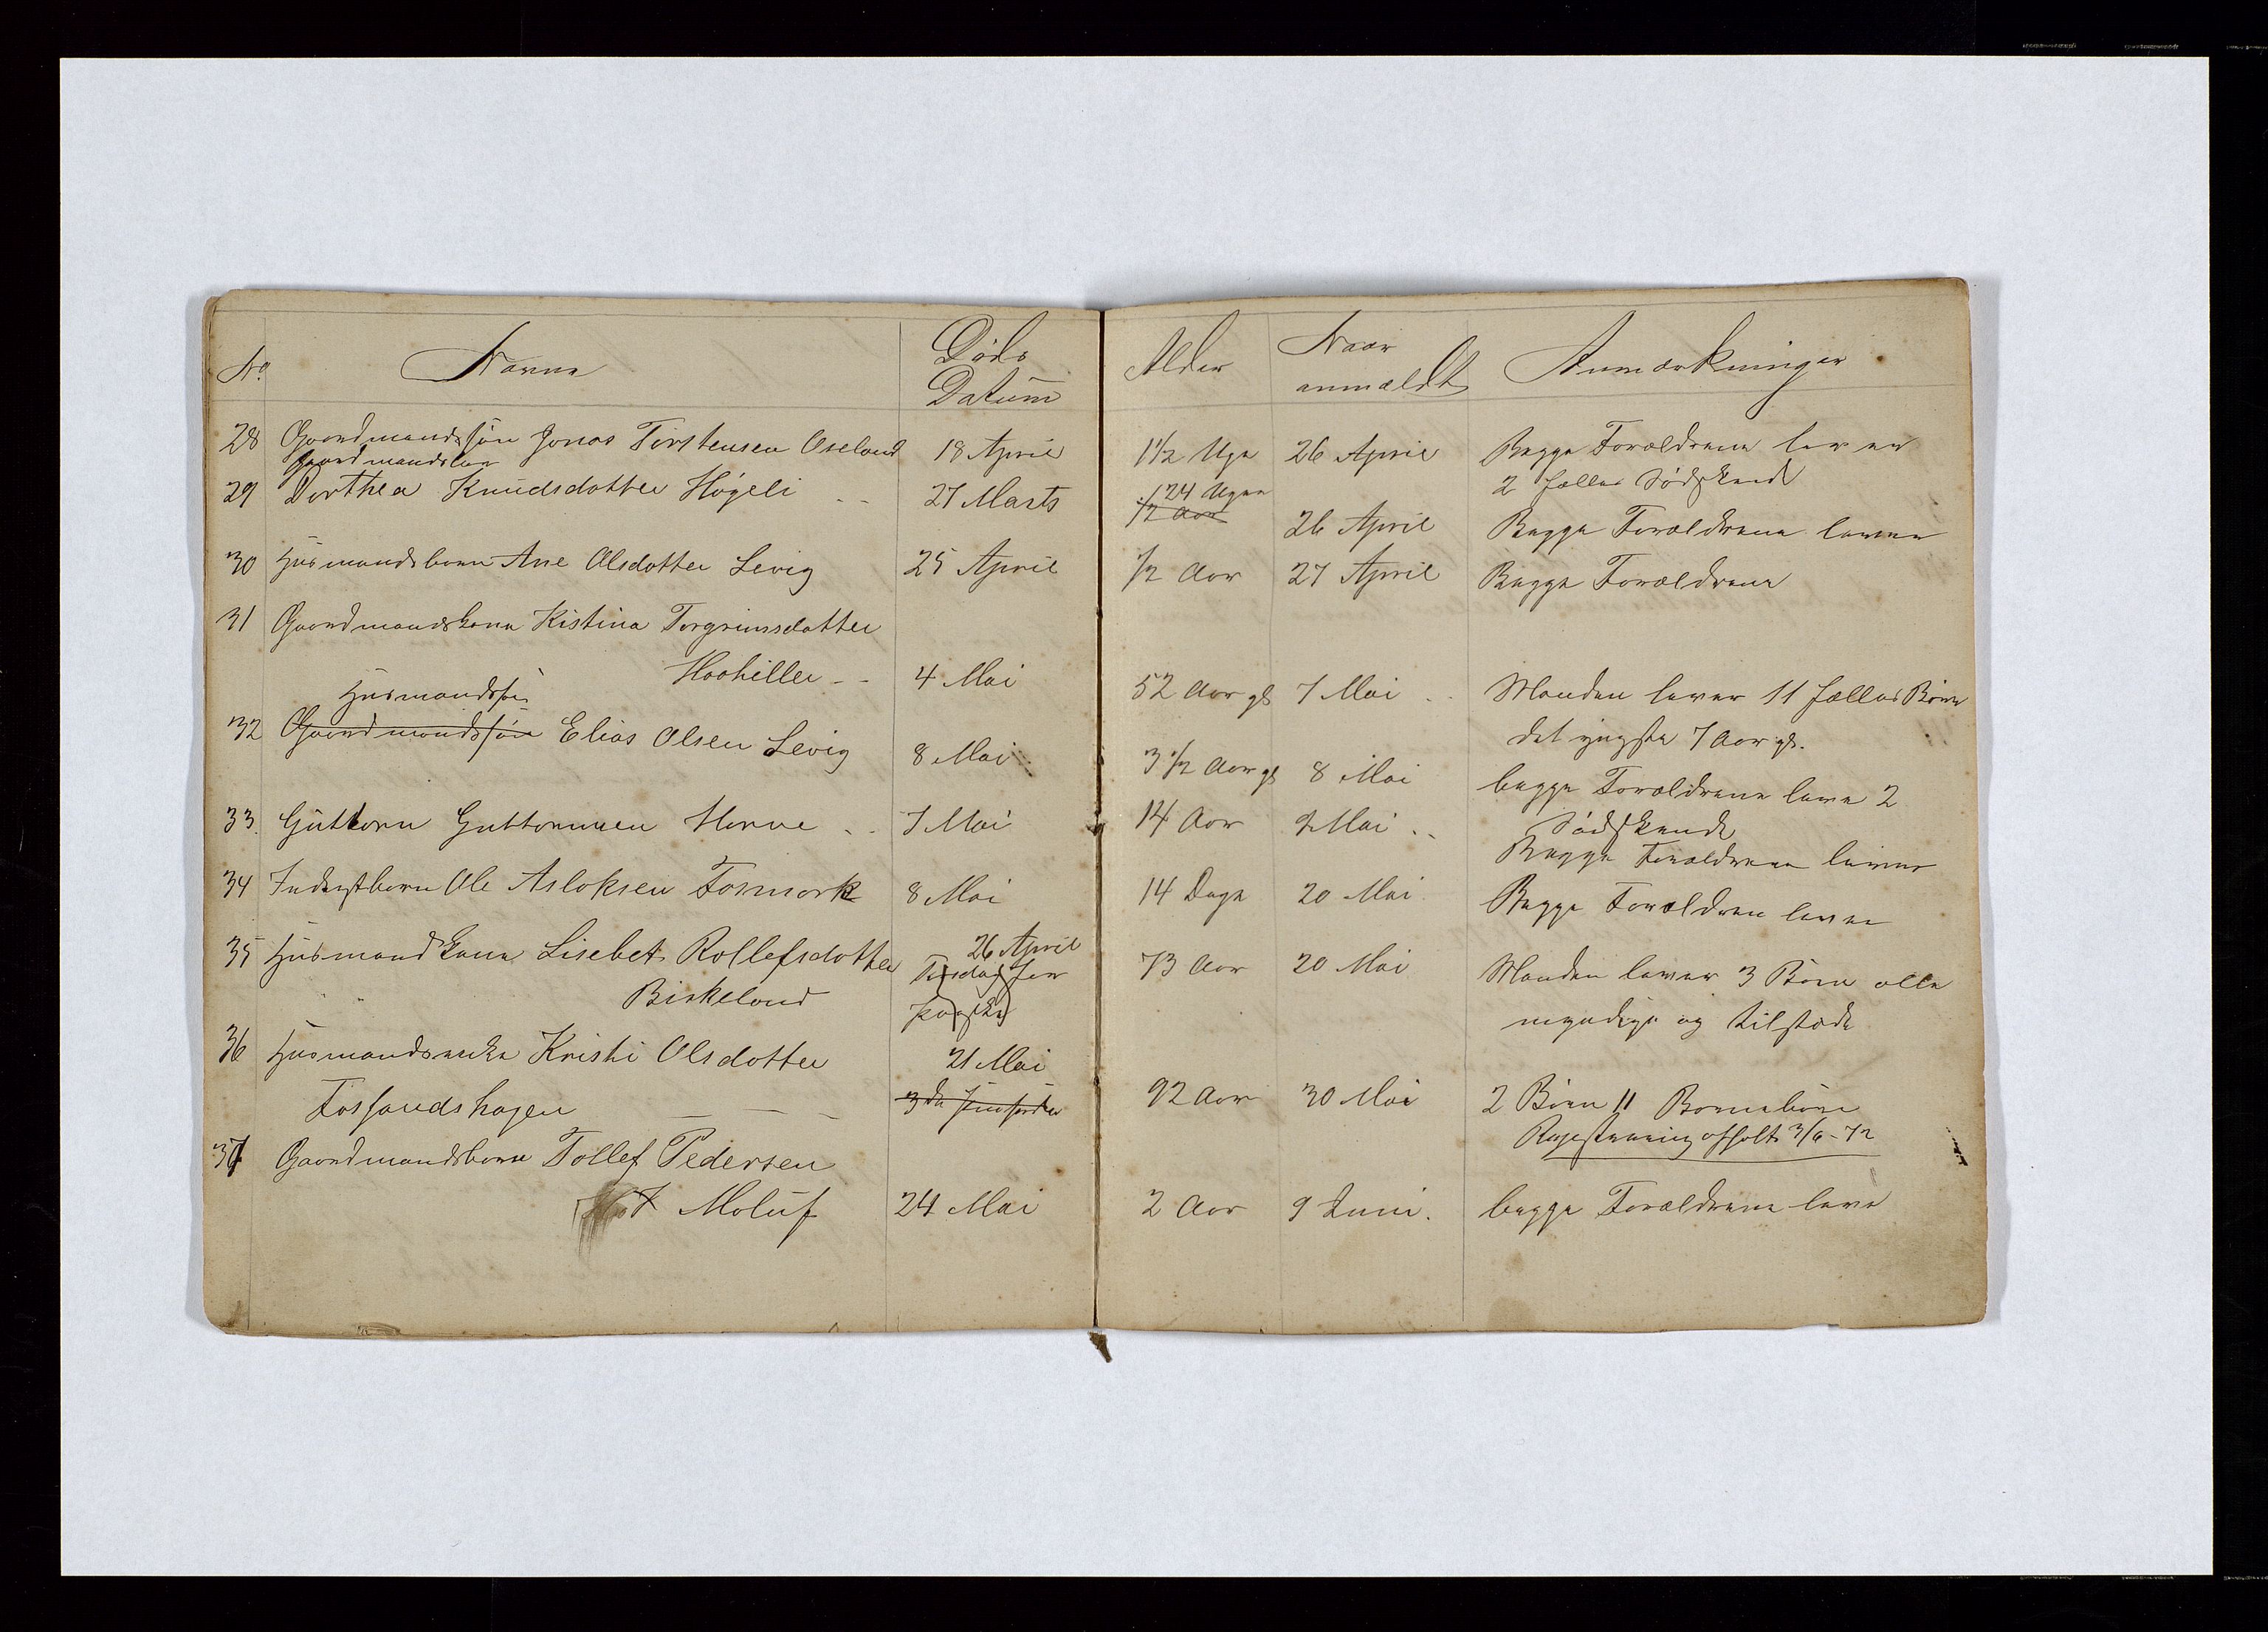 No. Navne Døds
Datum
Alder Naar
anmældt Anmærkninger
28 Gaardmandssøn Jonas Torstensen Oseland 18 April 1 1/2 Uge 26 April Begge Forældrene lever
2 fælles Sødskende
Gaardmandsbarn
29 Dorthea Knudsdotter Høgeli - - 27 Marts 24 Uger
1/2 Aar 26 April Begge Forældrene lever
30 Husmandsbarn Ane Olsdotter Levig 25 April 1/2 Aar 27 April Begge Forældrene
31 Gaardmandskone Kistina Torgrimsdotter
Haahiller - - 4 Mai 52 Aar gl 7 Mai - - Manden lever 11 fælles Børn
det yngste 7 Aar gl.
Husmandssøn
32 Gaardmandssøn Elias Olsen Levig 8 Mai 3 1/2 Aar gl 8 Mai begge Forældrene leve 2
Sødskende
33. Guttorm Guttormsen Horve - - 7 Mai 14 Aar 9 Mai - - Begge Forældrene lever
34 Inderstbarn Ole Asloksen Fosmork 8 Mai 14 Dage 20 Mai Begge Forældren lever
35 Husmandskone Lisebet Rollefsdotter
Birkeland 26 April
Tirsdag før
Paaske 73 Aar 20 Mai Manden lever 3 Børn alle
myndige og tilstæde
36 Husmandsenke Kristi Olsdotter
Fossandshagen - - - 21 Mai
3de 92 Aar 30 Mai 2 Børn 11 Børnebørn
Regestrering afholt 3/6-72
37 Gaardmandsbarn Tollef Pedersen
Moluf 24 Mai 2 Aar 9 Juni. begge Forældrene leve